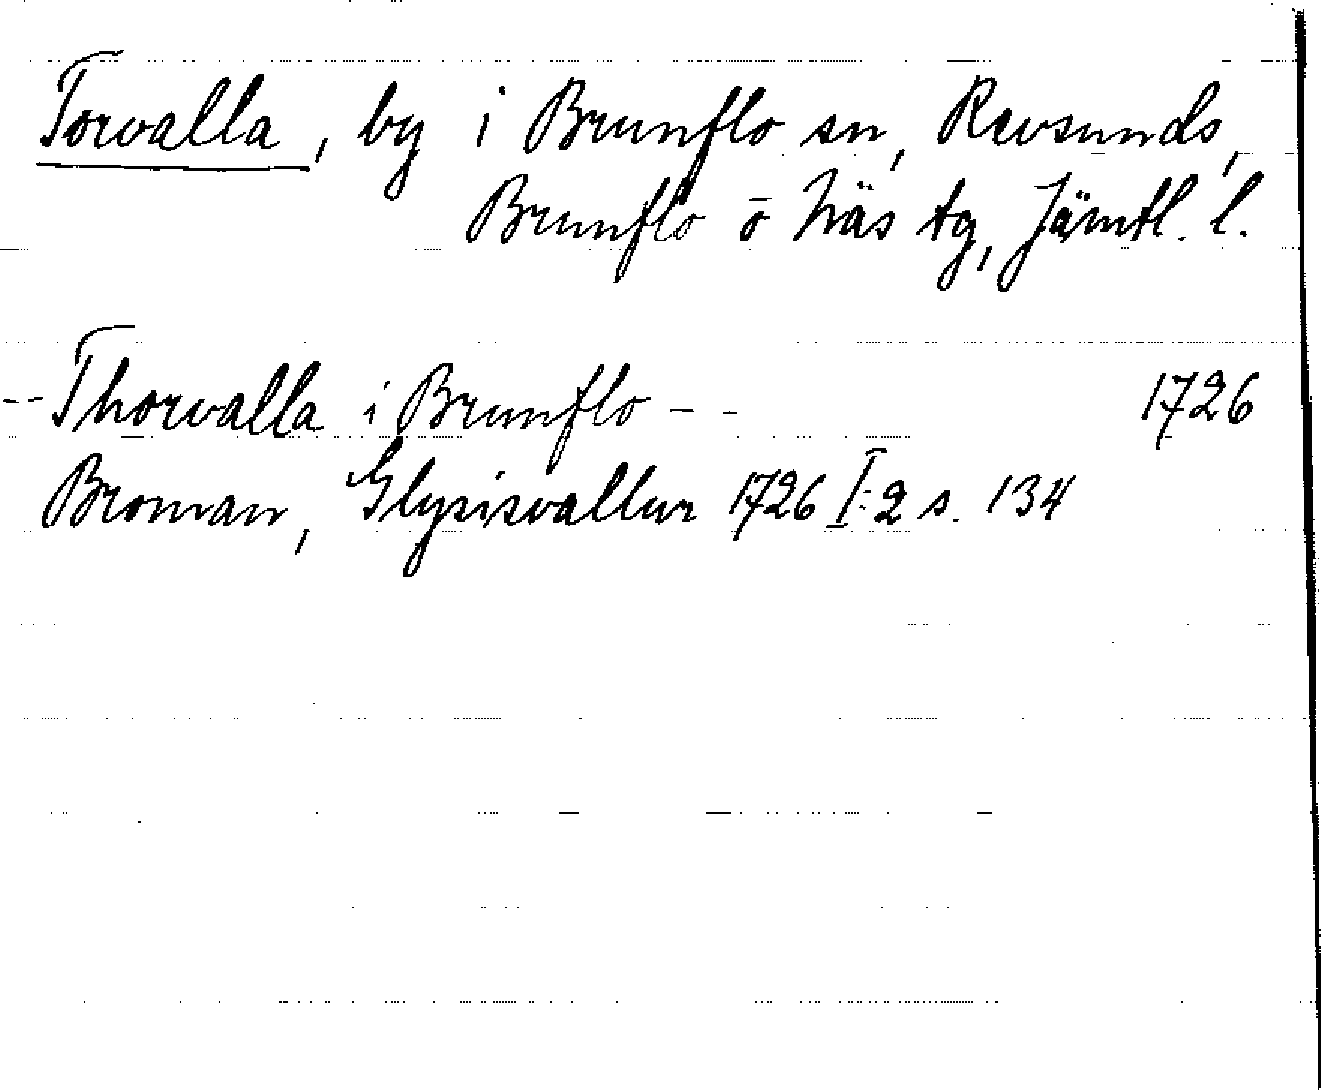 Torvalla, by i Brunflo sn, Revsunds,
Brunflo o Näs tg, Jämtl. l.
-- Thorvalla i Brunflo -- 1726
Broman, Glysisvallur 1726 I:2 s. 134